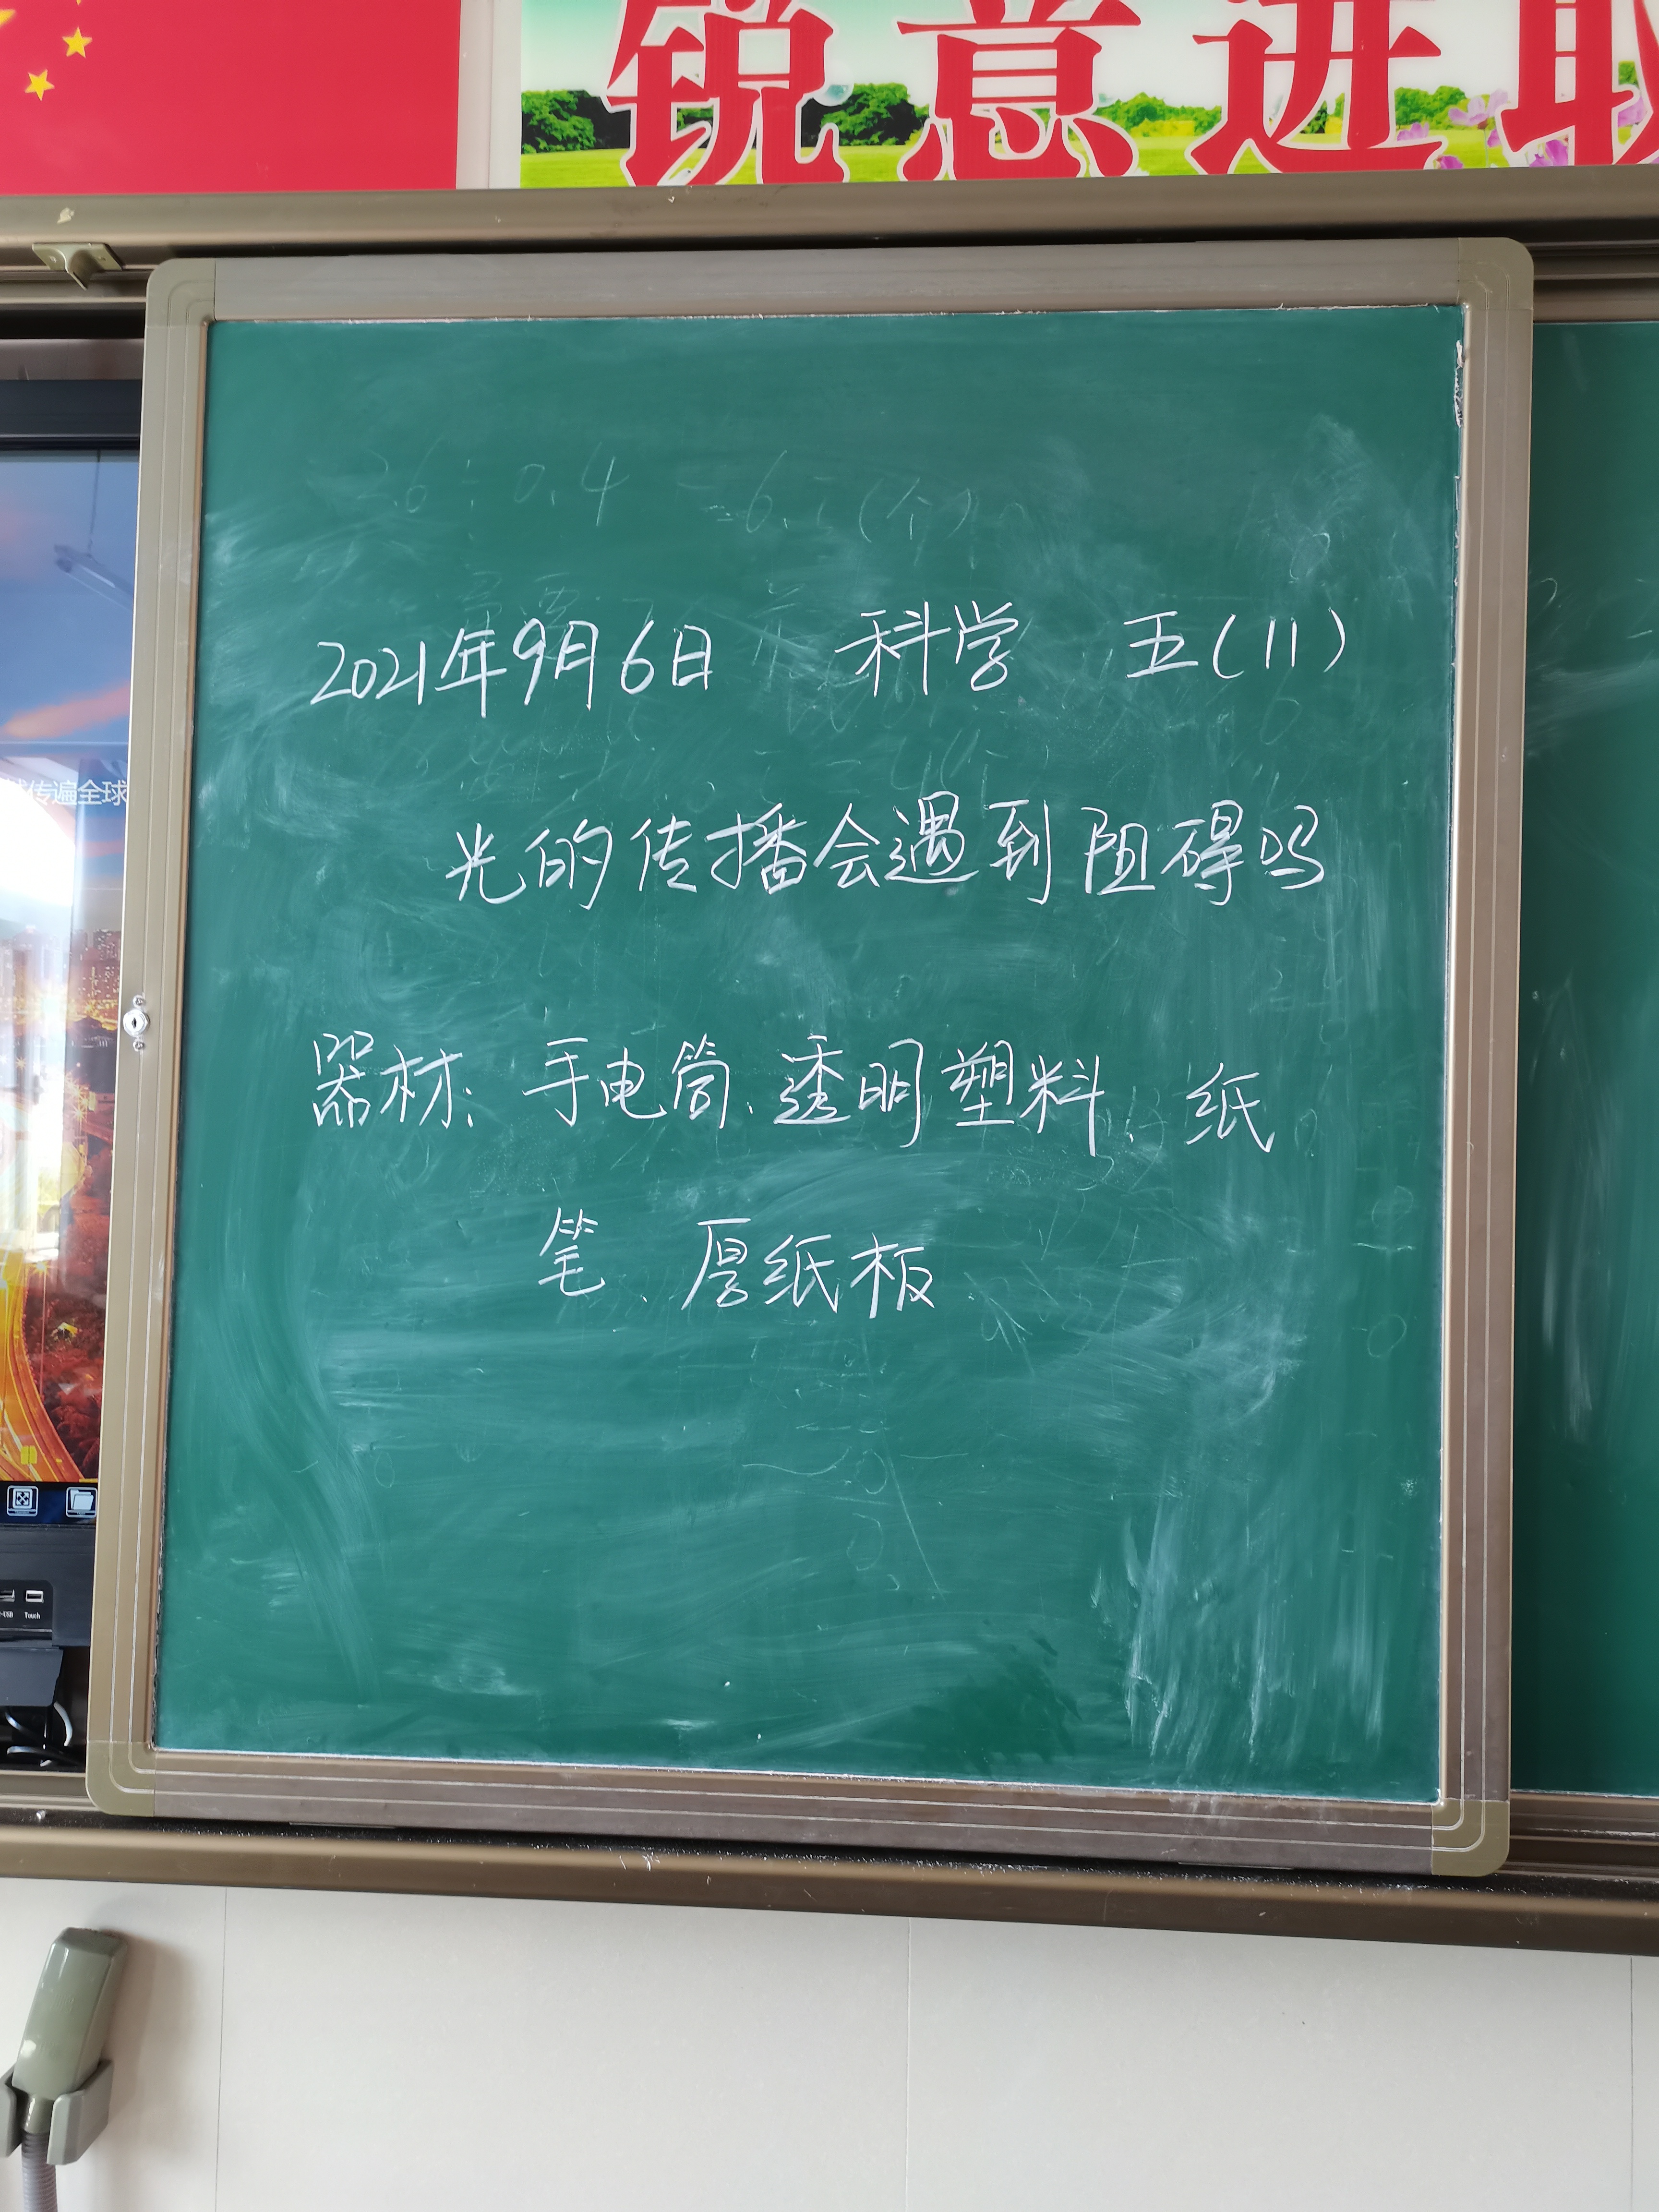 锐意进取
传遍全球
2.6÷0.4 =6.5(个)
2021年9月6日 科学 五(11)
光的传播会遇到阻碍吗
器材: 手电筒、透明塑料、纸
笔、厚纸板
Touch